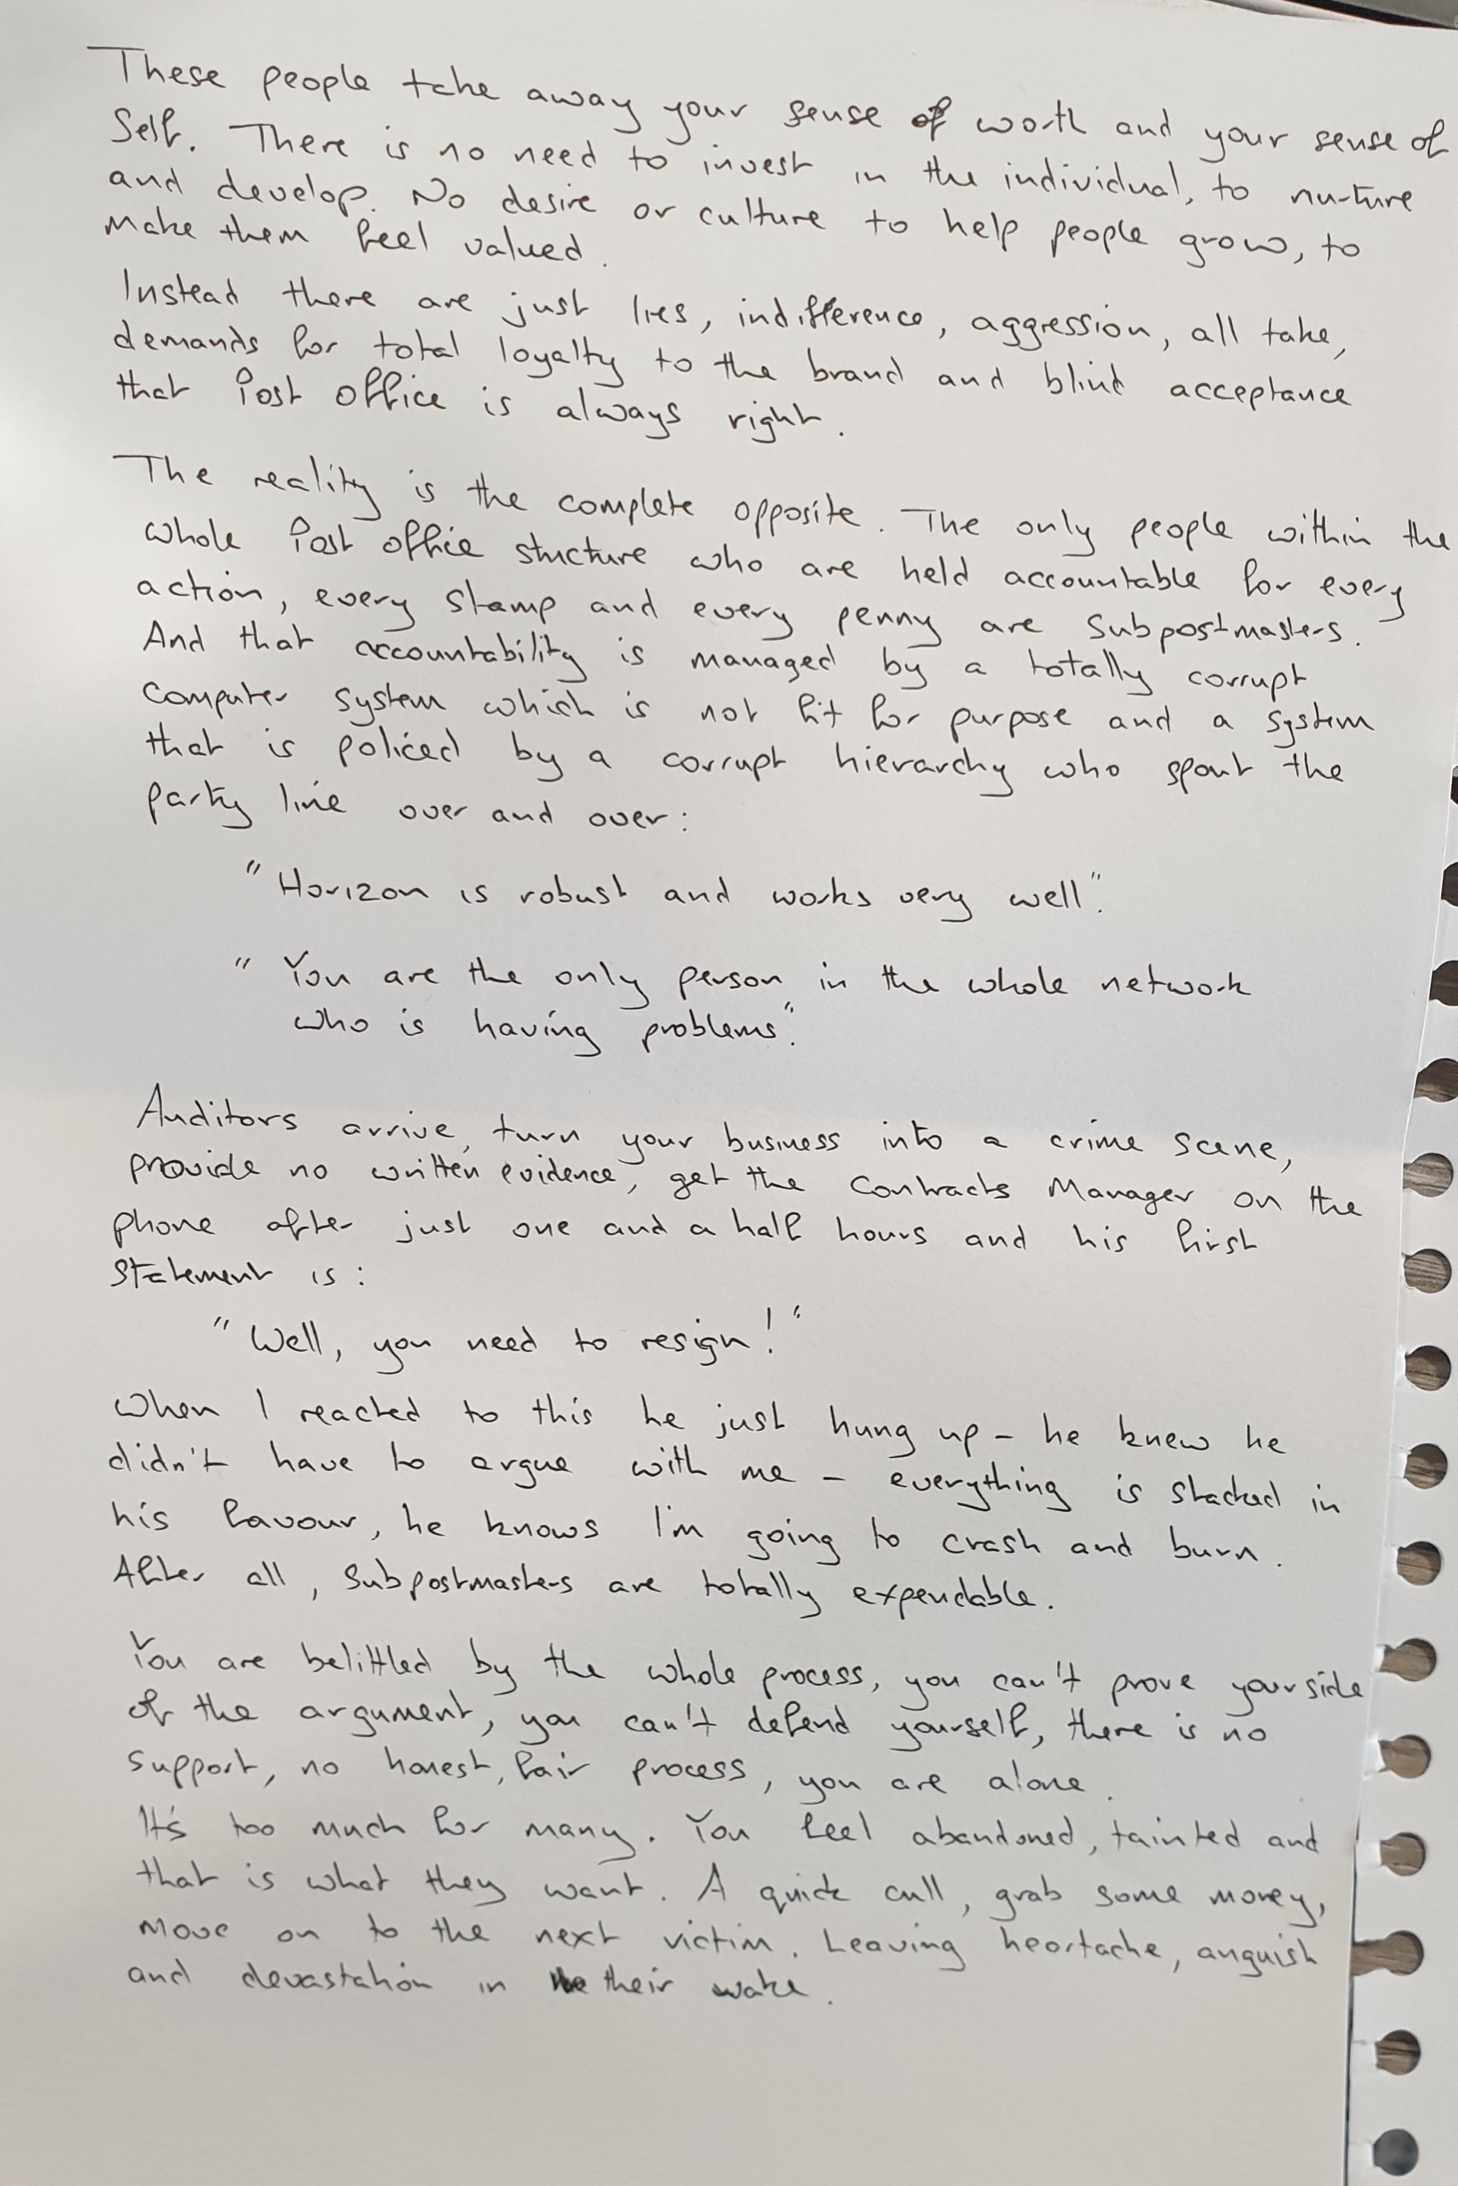 These people take away your sense of worth and your sense of
Self. There is no need to invest in the individual, to nurture
and develop. No desire or culture to help people grow, to
make them feel valued.
Instead there are just lies, indifference, aggression, all take,
demands for total loyalty to the brand and blind acceptance
that Post Office is always right.
The reality is the complete opposite. The only people within the
whole Post office structure who are held accountable for every
action, every stamp and every penny are Subpostmasters.
And that accountability is managed by a totally corrupt
computer system which is not fit for purpose and a system
that is policed by a corrupt hierarchy who spout the
party line over and over:
"Horizon is robust and works very well".
"You are the only person in the whole network
who is having problems".
Auditors arrive, turn your business into a crime scene,
provide no written evidence, get the Contracts Manager on the
phone after just one and a half hours and his first
statement is:
"Well, you need to resign!"
When I reacted to this he just hung up - he knew he
didn't have to argue with me - everything is stacked in
his favour, he knows I'm going to crash and burn.
After all, Subpostmasters are totally expendable.
You are belittled by the whole process, you can't prove your side
of the argument, you can't defend yourself, there is no
support, no honest, fair process, you are alone.
It's too much for many. You feel abandoned, tainted and
that is what they want. A quick cull, grab some money,
move on to the next victim. Leaving heartache, anguish
and devastation in their wake.